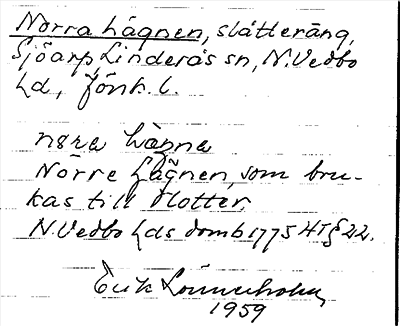 Norra hägnen, slåtteräng,
Sjöarp, Linderås sn, N. Vedbo
hd, Jönk. l.
nɶra hɶgna
Nörre hägnen, som bru-
kas till Slotter.
N. Vedbo hds domb 1775 HT § 22.
Erik Lönnerholm
1959